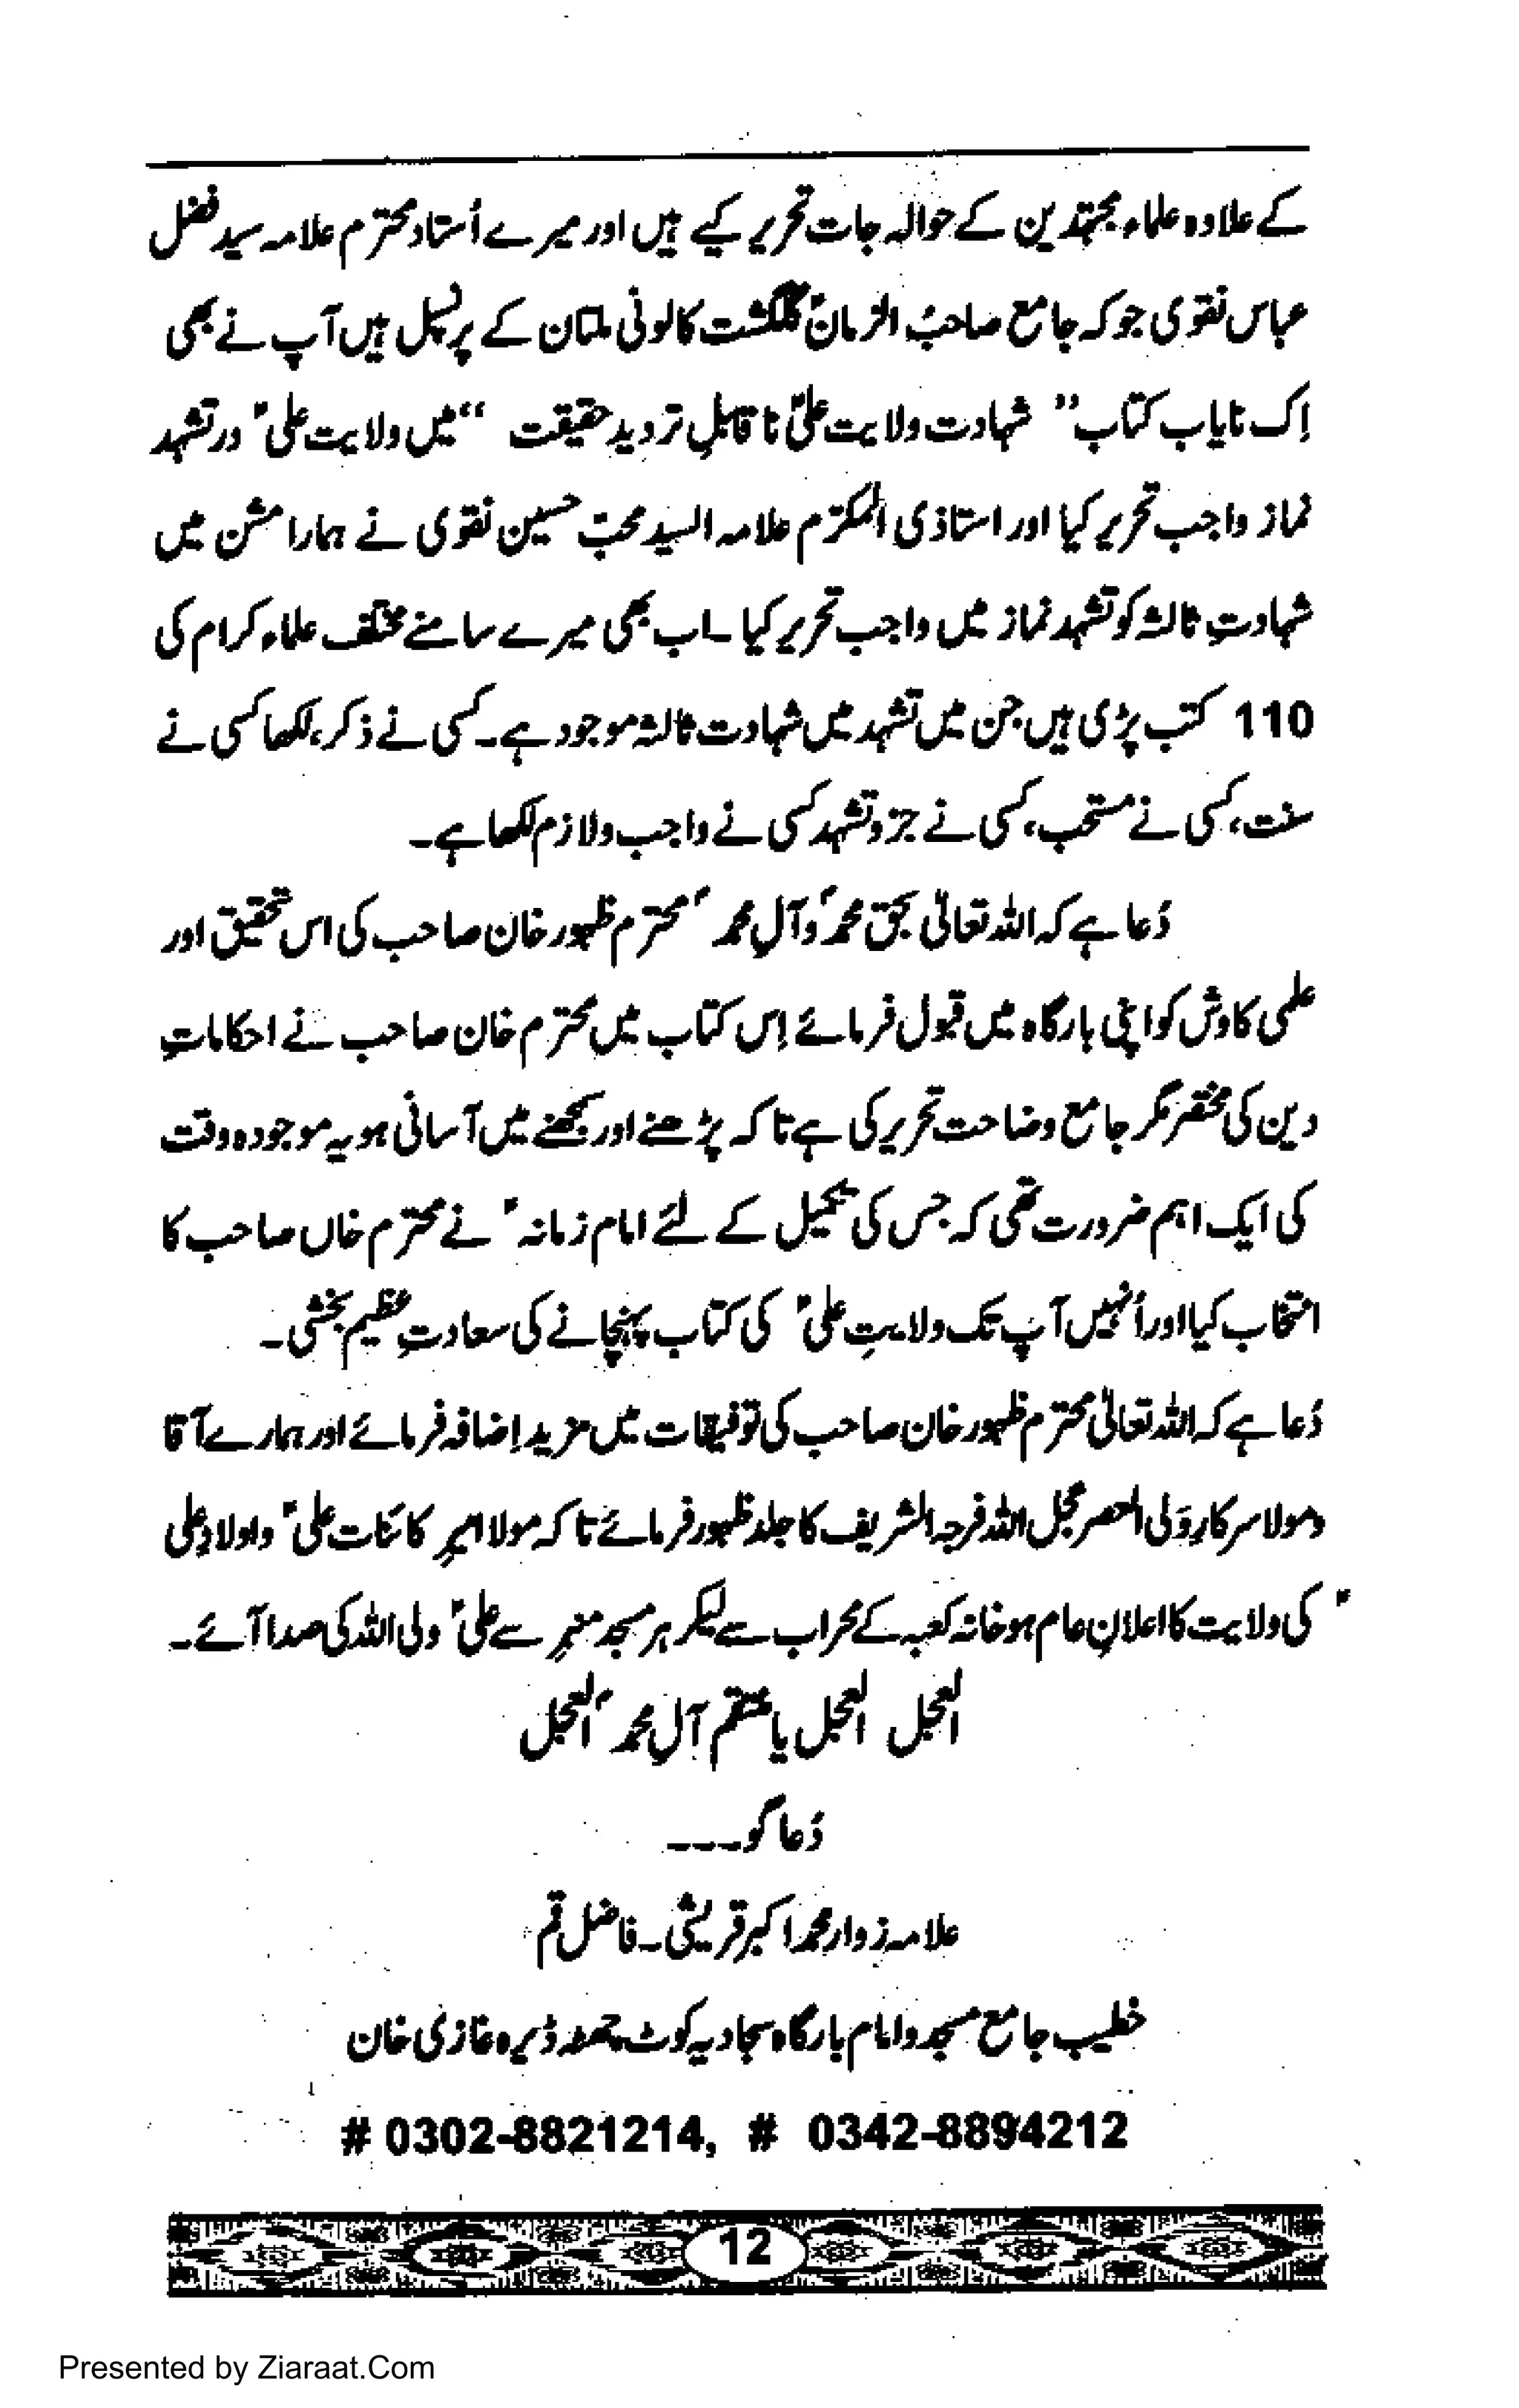 کے علاوہ علماء مجتہدین کے حوالہ جات تحریر کیے ہیں اور میرے اُستاد محترم علامہ سید فضل
عباس نقوی جو کہ جامع صاحبُ الزمانؑ گلگشت کالونی ملتان کے پرنسپل ہیں آپ نے بھی
اِک نایاب کتاب "شہادت ولایت علیؑ نا قابلِ تردید حقیقت " میں ولایت علیؑ در تشہد
نماز واجب تحریر کیا اور استاذی المکرّم علامہ السید محب حسین نقوی نے ہمارا مشن میں
شہادتِ ثالثہ کو تشہد نماز میں واجب تحریر کیا۔اب بھی میرے سامنے مختلف علماء کرام کی
110 کتب پڑی ہیں جن میں تشہد میں شہادت ثالثہ موجود ہے۔کسی نے ذکر،لکھا کسی نے
سنت،کسی نے مستحب،کسی نے جزوتشہد کسی نے واجب ولازم لکھا ہے۔
دُعا ہے کہ اللہ تعالیٰ بحق محمدؐ وآل محمدؐ محترم ظہور خان صاحب کی اس تحقیق اور
علمی کاوش کو اپنی بارگاہ میں قبول فرمائے اِس کتاب میں محترم خان صاحب نے احکاماتِ
دین کی مختصر مگر جامع وضاحت تحریر کی ہے تا کہ پڑھنے اور سمجھنے میں آسانی ہو یہ موجودہ وقت
کی ایک اہم ضرورت تھی کہ جس کی تکمیل کے لئے امام زمانہؑ نے محترم خاں صاحب کا
انتخاب کیا اور اُنہیں آپ تک ولایتِ علیؑ کی کتاب پہنچانے کی سعادتِ عظیم بخشی۔
دُعا ہے کہ اللہ تعالیٰ محترم ظہور خان صاحب کی توفیقات میں مزید اِضافہ فرمائے اور ہمارے آقا
ومولا سرکارِ وَلی العصر عجل اللہ فرجہ الشریف کا جلد ظہور فرمائے تا کہ مولا امیرِ کائنات علیؑ واولادِ علی
ؑ کی ولایت کا اعلانِ عام ہو خانہ کعبہ کے محراب سے لیکر ہر مسجد منبر سے علیؑ ولی اللہ کی صدا آئے۔
العجل العجل یا منتقم آلِ محمدؐ العجل
دُعا گو۔۔۔
علامہ زوار محمد اکبر قریشی۔فاضل قم
خطیب جامع مسجد وامام بارگاہ سجادیہ کوٹ چھٹہ ڈیرہ غازی خان
# 0302-8821214, # 0342-8894212
12
Presented by Ziaraat.Com